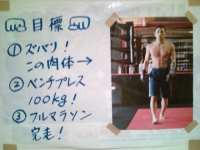 目標
①ズバリ!
この肉体→
②ベンチプレス
100kg!
③フルマラソン
完走!